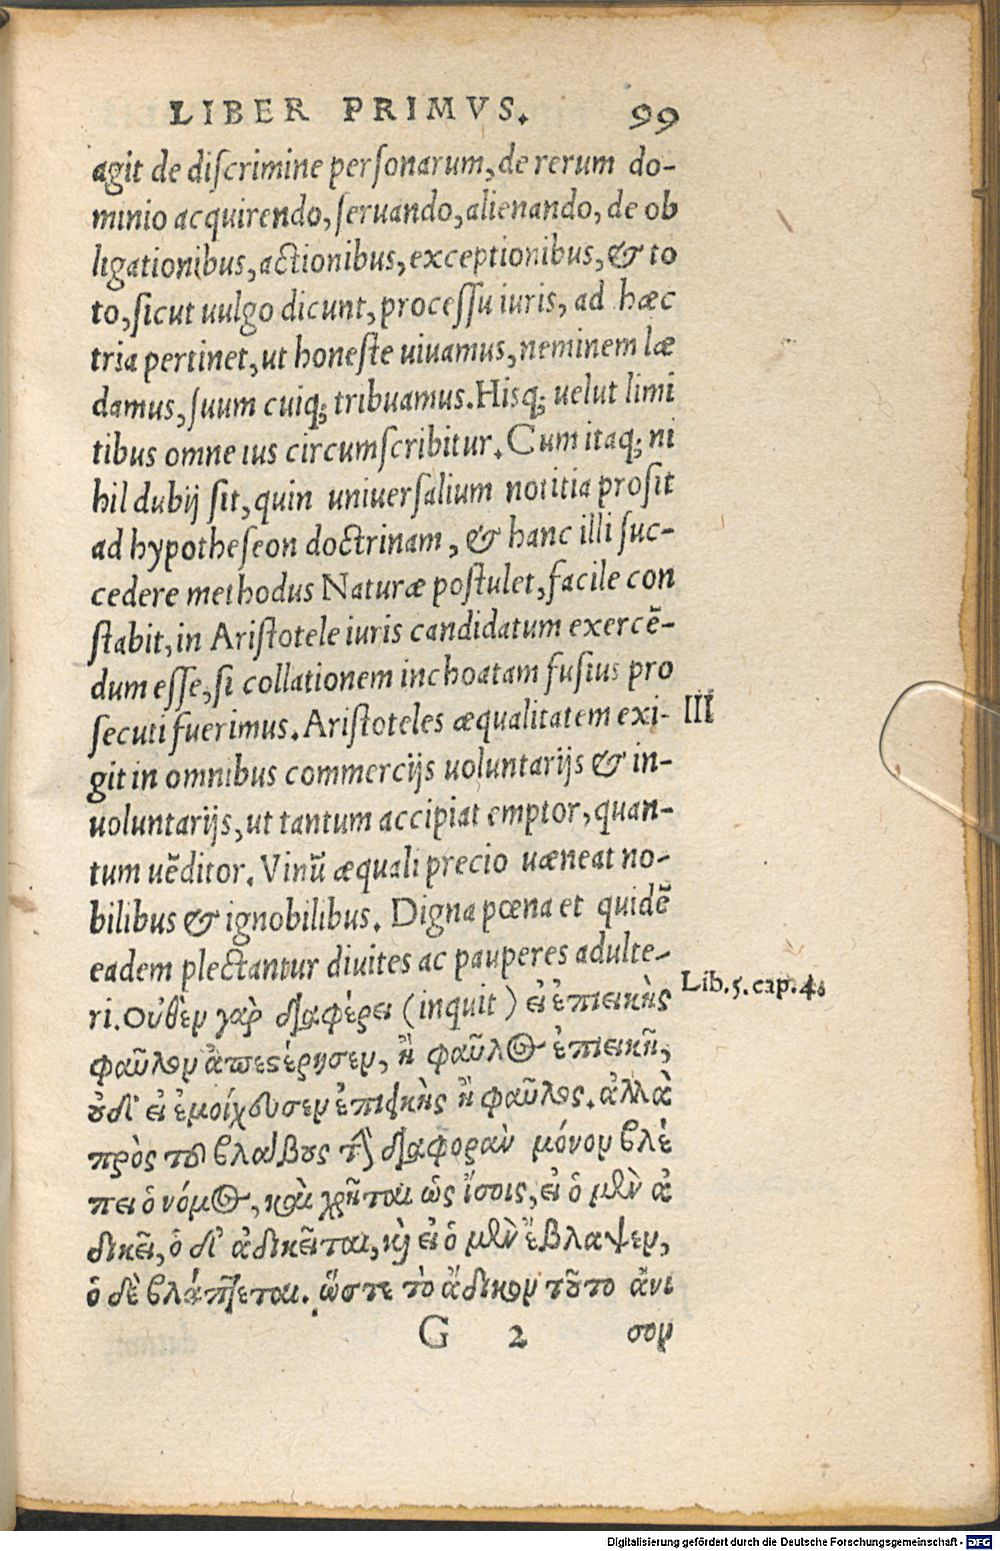 LIBER PRIMVS. 99
agit de diſcrimine perſonarum, de rerum do-
minio acquirendo, ſeruando, alienando, de ob
ligationibus, actionibus, exceptionibus, & to
to, ſicut uulgo dicunt, proceſſu iuris, ad hæc
tria pertinet, ut honeſte uiuamus, neminem læ
damus, ſuum cuiq; tribuamus. Hisq; uelut limi
tibus omne ius circumſcribitur. Cum itaq; ni
hil dubij ſit, quin uniuerſalium notitia proſit
ad hypotheſeon doctrinam, & hanc illi ſuc-
cedere methodus Naturæ poſtulet, facile con
ſtabit, in Ariſtotele iuris candidatum exercē-
dum eſſe, ſi collationem inchoatam fuſius pro
ſecuti fuerimus. Ariſtoteles æqualitatem exi- III
git in omnibus commercijs uoluntarijs & in-
uoluntarijs, ut tantum accipiat emptor, quan-
tum uēditor. Vinū æquali precio uæneat no-
bilibus & ignobilibus. Digna pœna et quidē
eadem plectantur diuites ac pauperes adulte-
ri. Οὐθὲν γὰρ διαφέρει (inquit) εἰ ἐπιεικὴς Lib. 5. cap. 4.
φαῦλον ἀπεϛέρησεν, ἢ φαῦλος ἐπιεικῆ,
ȣ̓δ' εἰ ἐμοίχευσεν ἐπιεικὴς ἢ φαῦλος. ἀλλὰ
πρὸς τοῦ βλάβους τὴν διαφορὰν μόνον βλέ
πει ὁ νόμος, καὶ χρῆται ὡς ἴσοις, εἰ ὁ μὲν ἀ
δικεῖ, ὁ δ' ἀδικεῖται, κỳ εἰ ὁ μὲν ἔβλαψεν,
ὁ δὲ βλάπτεται. ὥστε τὸ ἄδικον τȣ͂το ἄνι
G 2 σον
Digitalisierung gefördert durch die Deutsche Forschungsgemeinschaft - DFG